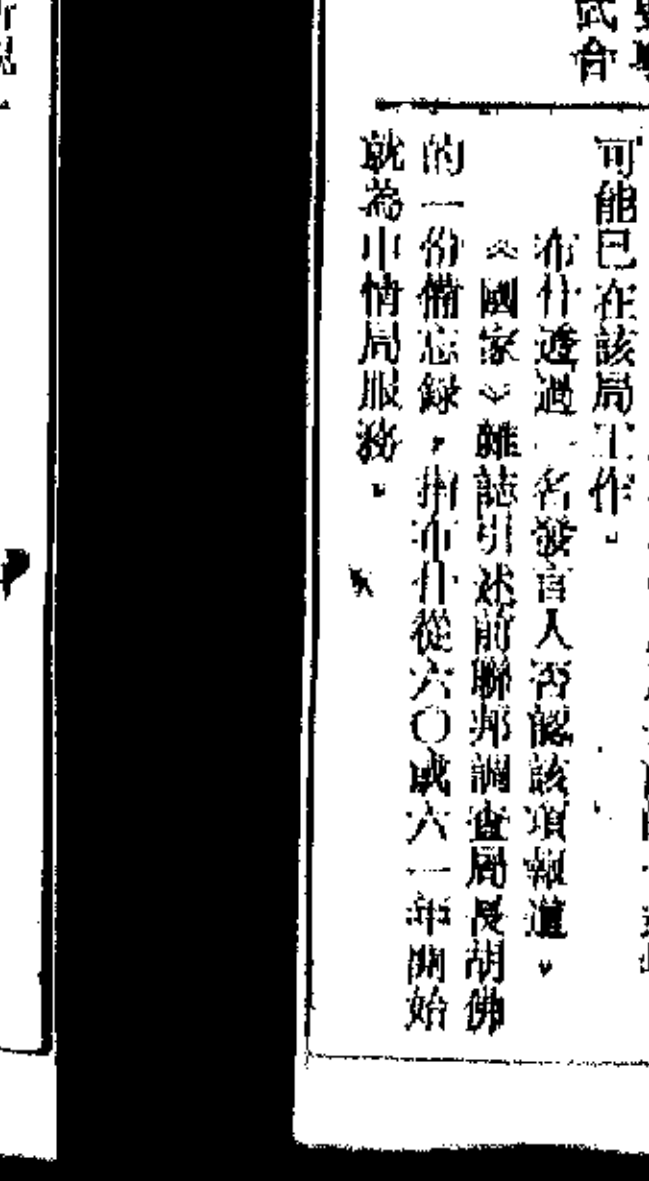 可能已在該局工作。
布什透過一名發言人否認該項報道。
《國家》雜誌引述前聯邦調查局長胡佛
的一份備忘錄,指布什從六〇或六一年開始
就為中情局服務。